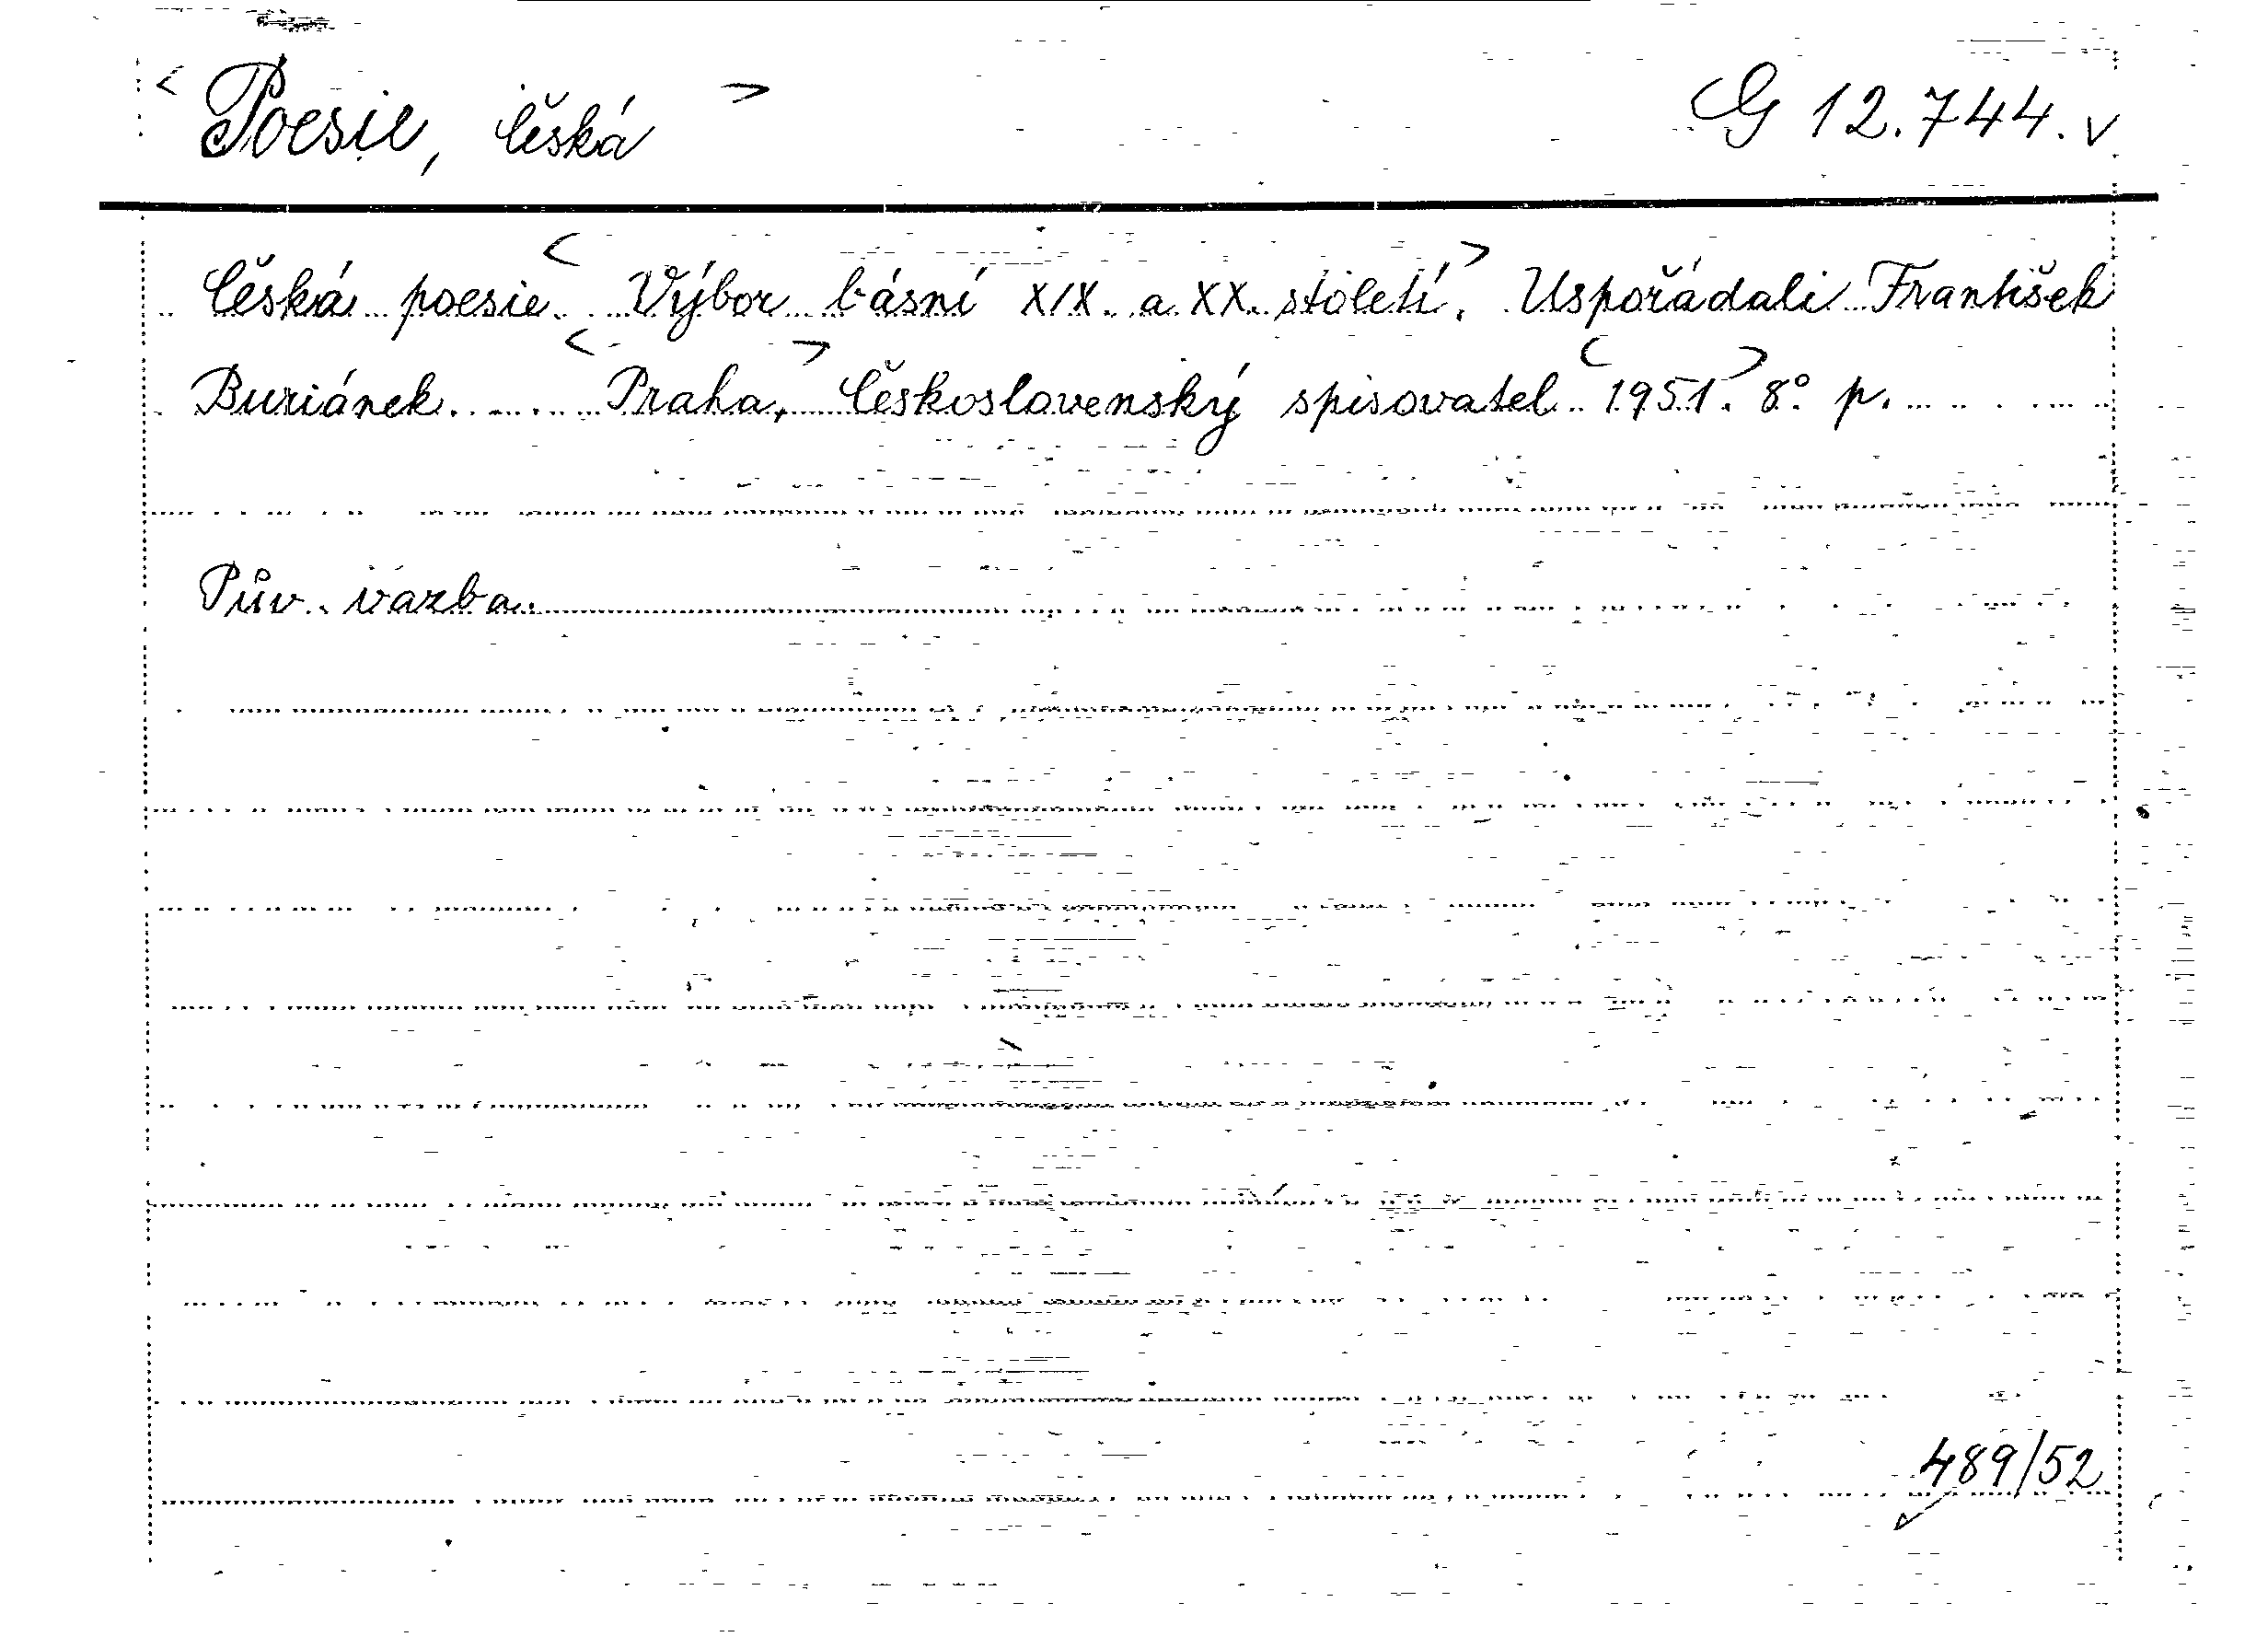 < Poesie, česká > G 12.744. v
Česká poesie. < Výbor básní XIX. a XX. století. > Uspořádali František
Buriánek. ..... < Praha, > Československý spisovatel < 1951. > 8° p.
Pův. vazba.
489/52